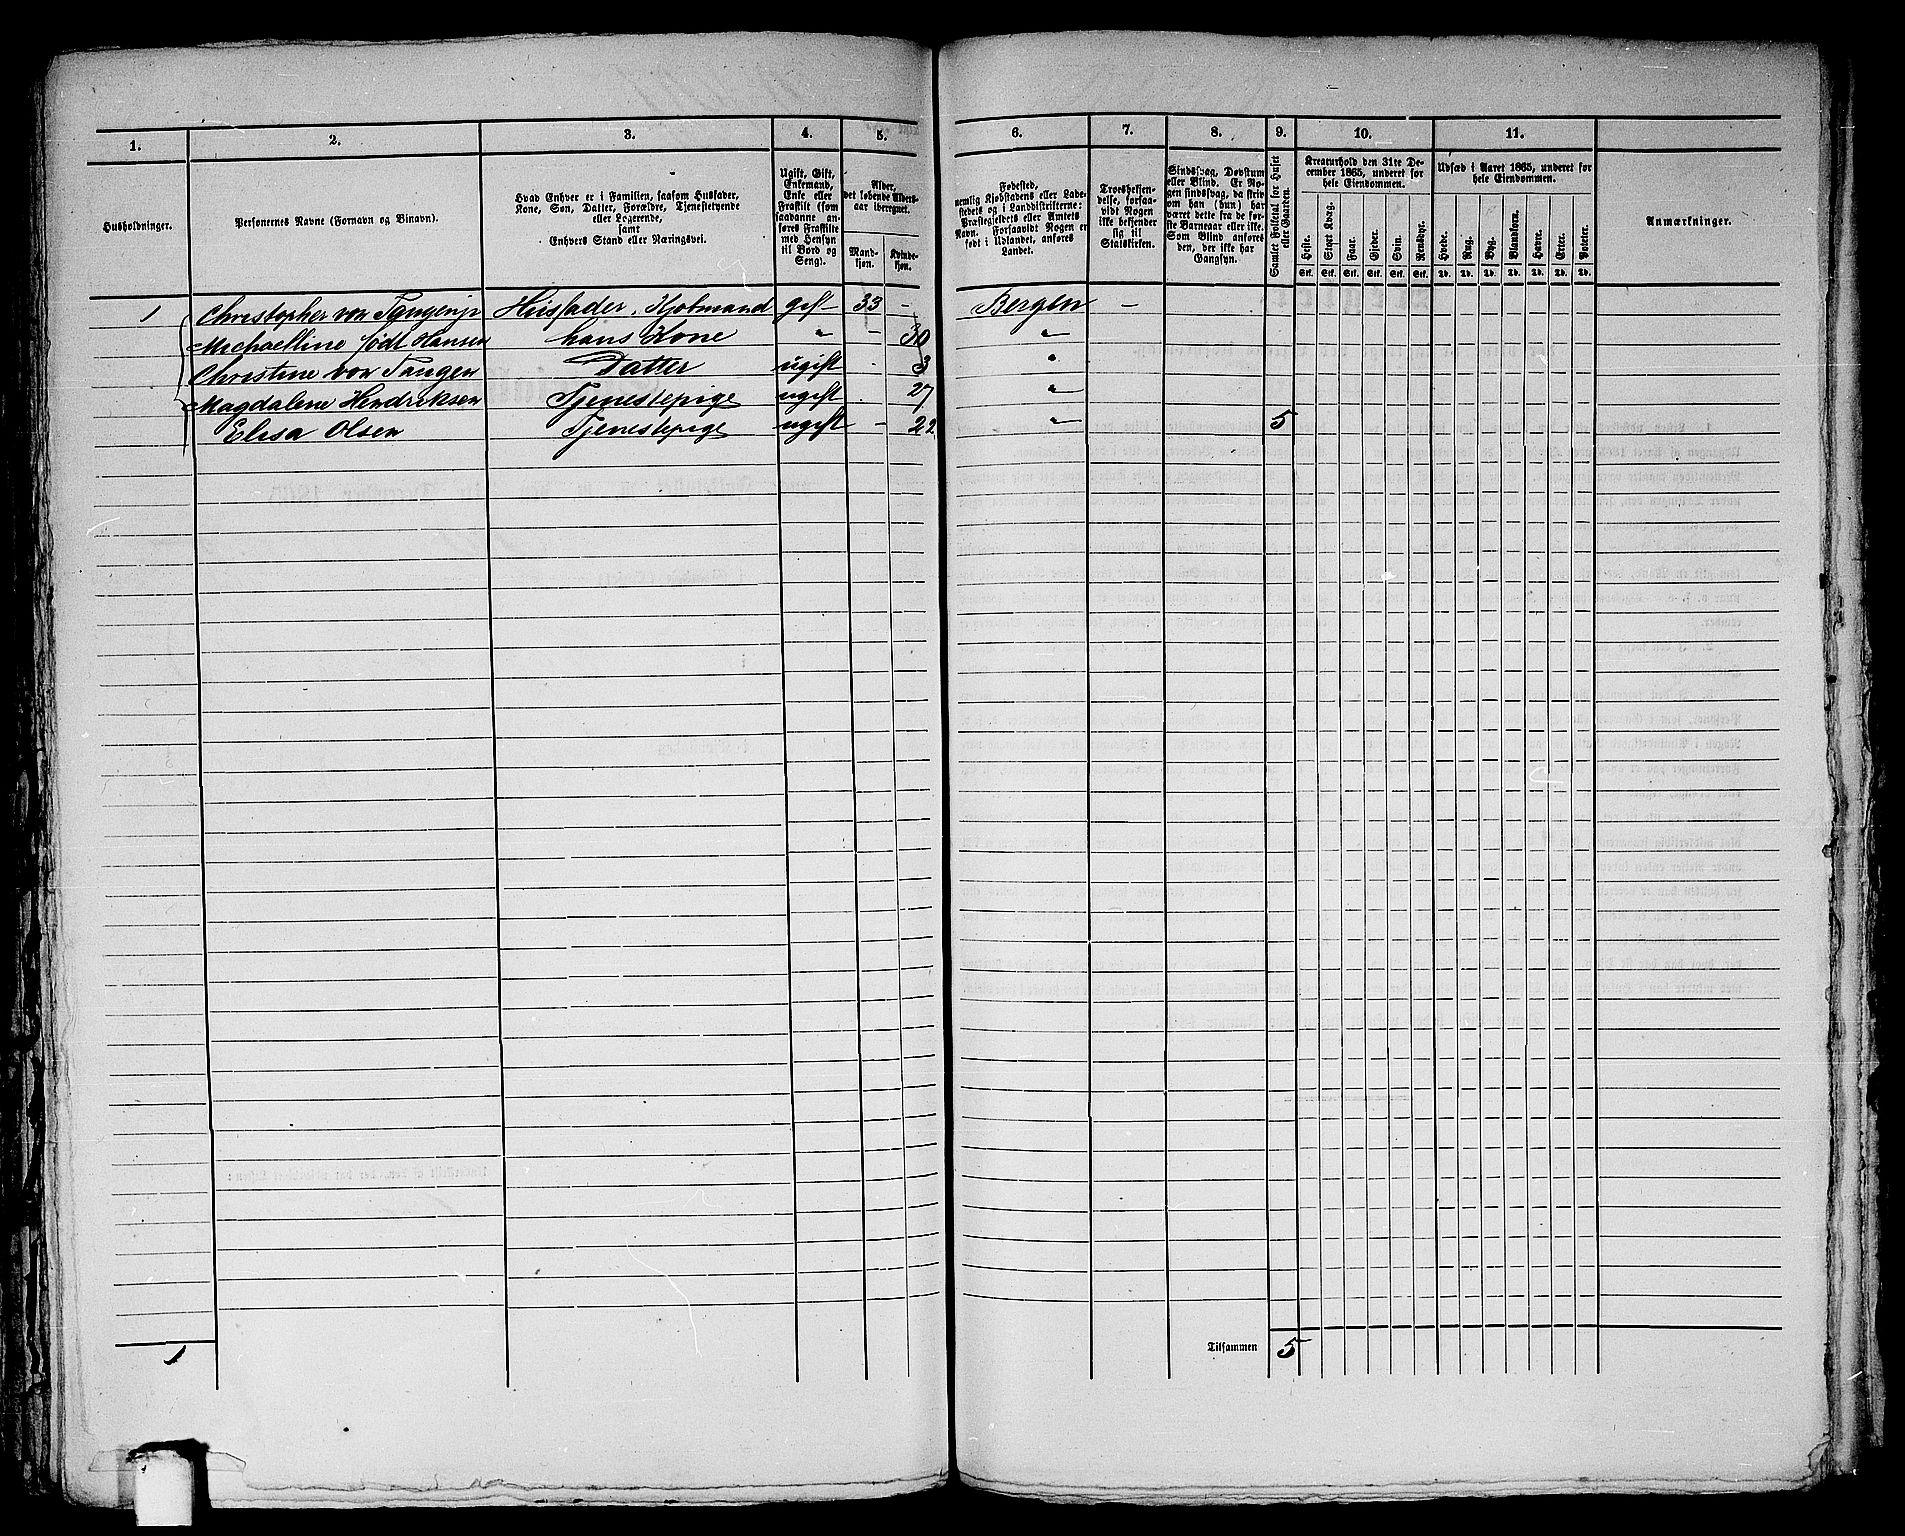 1. 2. 3. 4. 5. 6. 7. 8. 9. 10. 11.
Husholdninger.
Personernes Navne (Fornavn og Binavn).
Hvad Enhver er i Familien, saasom Husfader,
Kone, Søn, Datter, Forældre, Tjenestetyende
eller Logerende,
samt
Enhvers Stand eller Næringsvei.
Ugift, Gift,
Enkemand,
Enke eller
Fraskilt (som
saadanne an-
føres Fraskilte
med Hensyn
til Bord og
Seng).
Alder,
det løbende Alders-
aar iberegnet.
Mand-
kjøn.
Kvinde-
kjøn.
Fødested,
nemlig Kjøbstadens eller Lade-
stedets og i Landdistrikterne:
Præstegjeldets eller Amtets
Navn. Forsaavidt Nogen er
født i Udlandet, anføres
Landet.
Troesbekjen-
delse, forsaa-
vidt Nogen
ikke bekjender
sig til
Statskirken.
Sindssvag, Døvstum
eller Blind. Er No-
gen sindssvag, da skriv
om han (hun) har
været dette fra de før-
ste Barneaar eller ikke.
Som Blind anføres
den, der ikke har
Gangsyn.
Samlet Folketal for Huset
eller Gaarden.
Kreaturhold den 31te De-
cember 1865, underet for
hele Eiendommen.
Heste. Stort Kvæg. Faar. Gjeder. Svin. Rensdyr.
Stk. Stk. Stk. Stk. Stk. Stk.
Udsæd i Aaret 1865, underet for
hele Eiendommen.
Hvede. Rug. Byg. Blandkorn. Havre. Erter. Poteter.
Td. Td. Td. Td. Td. Td. Td.
Anmærkninger.
1 Christopher von Tangenjr Huusfader, Kjøbmand gift 33 - Bergen -
Michaelline født Hansen hans Kone " - 30 "
Christine von Tangen Datter ugift - 3 "
Magdalene Hendriksen Tjenestepige ugift - 27 "
Elisa Olsen Tjenestepige ugift - 22 " 5
1 Tilsammen 5